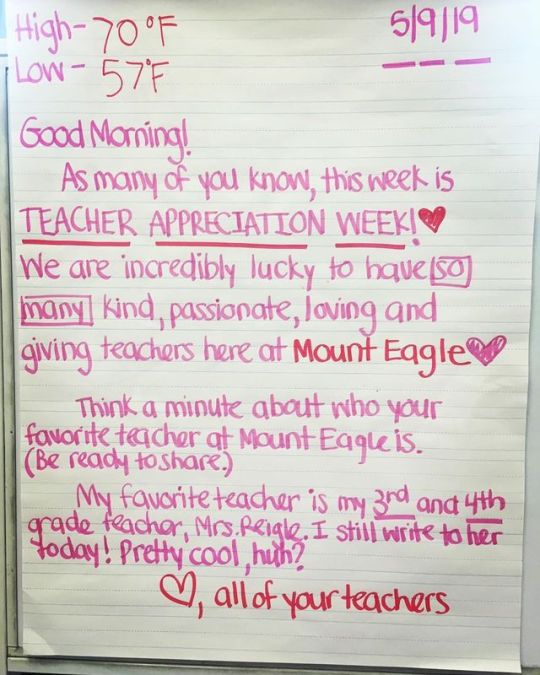 High- 70°F
5/9/19
Low- 57°F
Good Morning!
As many of you know, this week is
TEACHER APPRECIATION WEEK!
We are incredibly lucky to have so
many kind, passionate, loving and
giving teachers here at Mount Eagle
Think a minute about who your
favorite teacher at Mount Eagle is.
(Be ready to share.)
My favorite teacher is my 3rd and 4th
grade teacher, Mrs. Reigle. I still write to her
today! Pretty cool, huh?
♡, all of your teachers